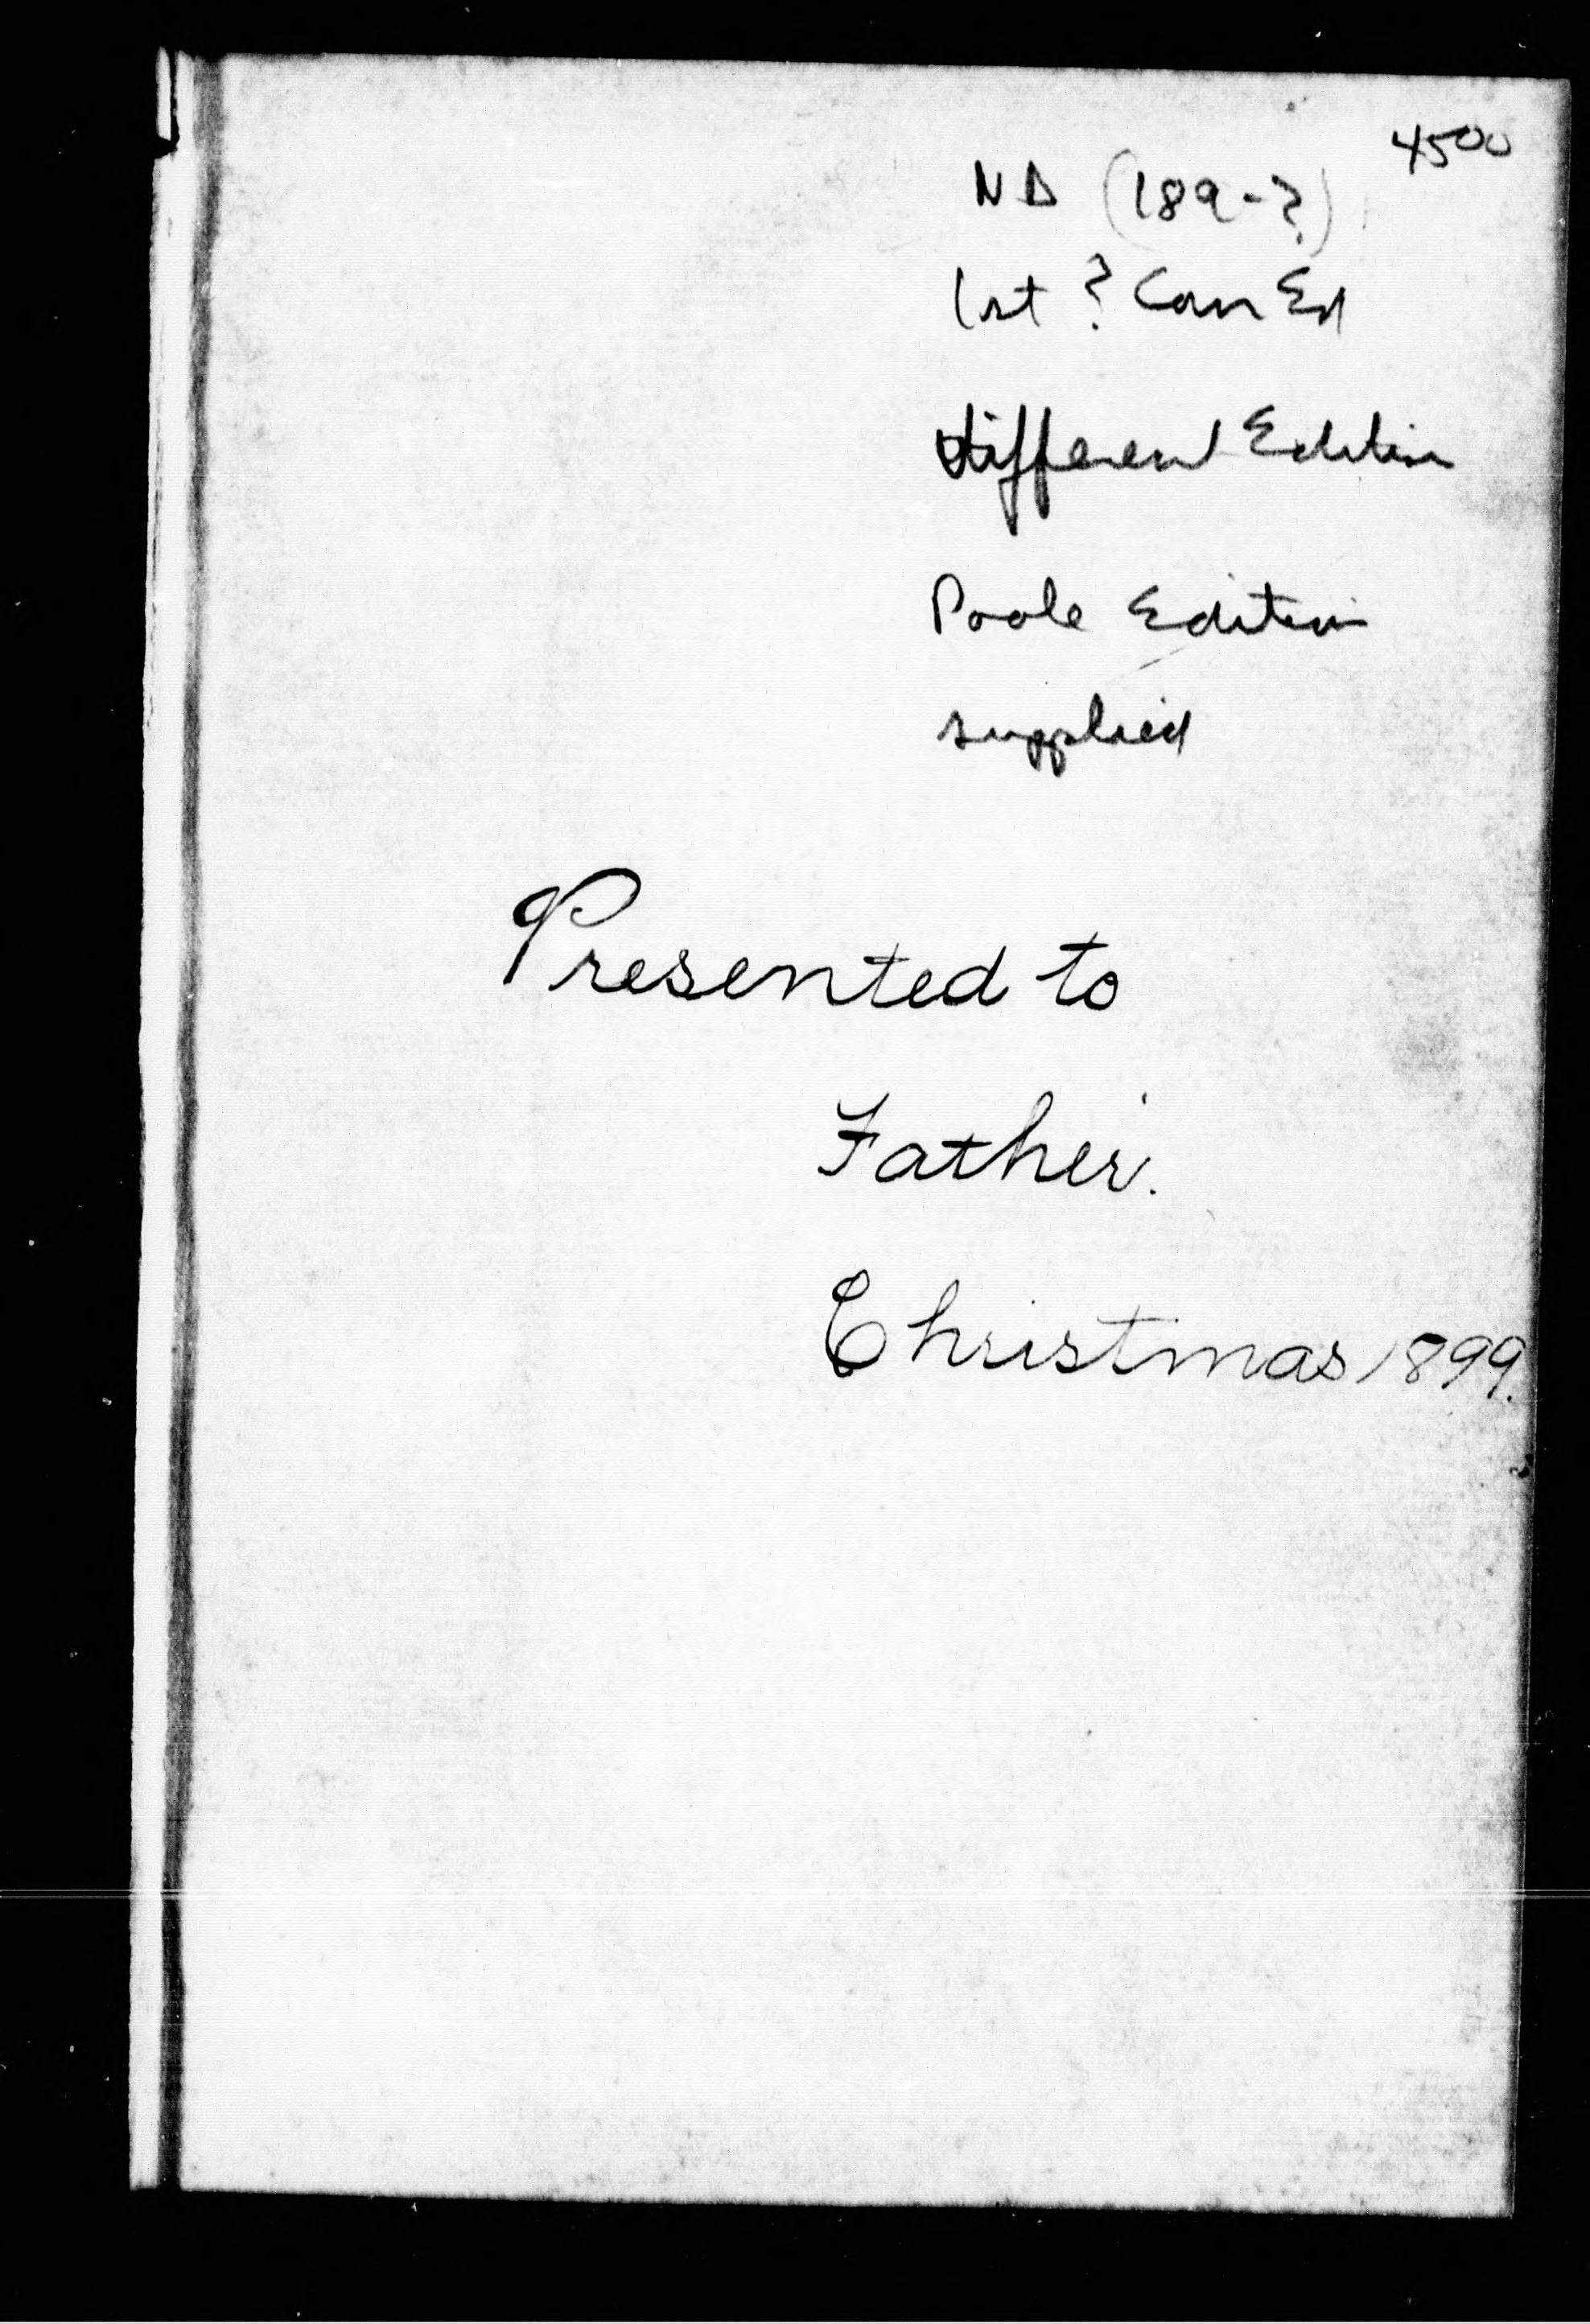 4500
ND (189-?)
1st ? Can Ed
different Edition
Poole Edition
supplied
Presented to
Father.
Christmas 1899.